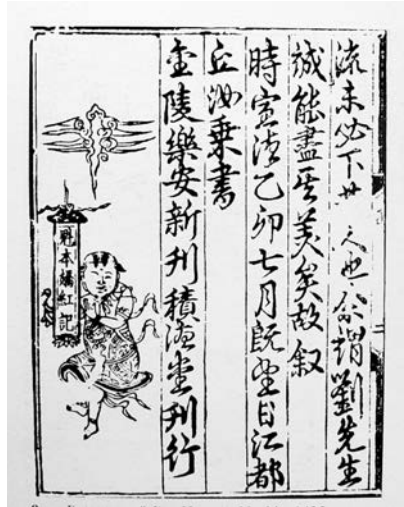 流未必下世人也余謂劉先生
誠能盡美矣故叙
時宣德乙卯七月既望日江都
丘汝乘書
金陵樂安新刊積德堂刊行
本嬌紅記